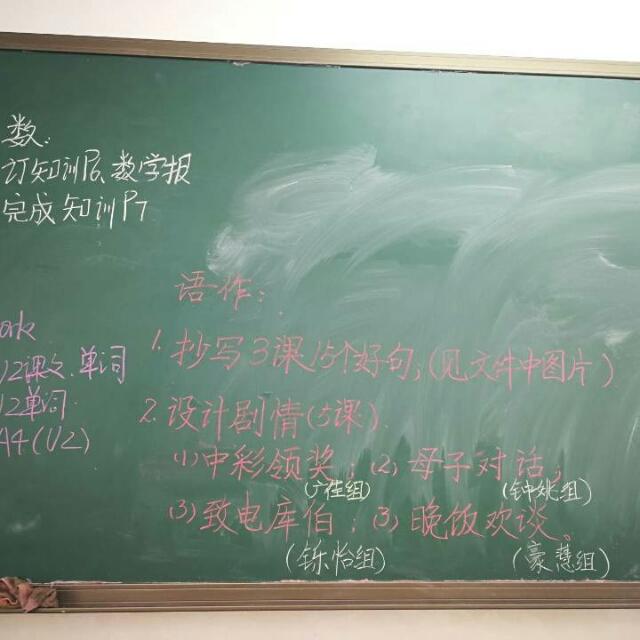 数:
订知训P6、数学报
完成知训P7
ork
U2课文.单词
U2单词
A4(U2)
语作:
1.抄写3课15个好句,(见文件中图片)
2.设计剧情(5课).
(1)中彩领奖;(2)母子对话;
(广佳组) (钟姚组)
(3)致电库伯;(3)晚饭欢谈。
(铄怡组) (豪慧组)